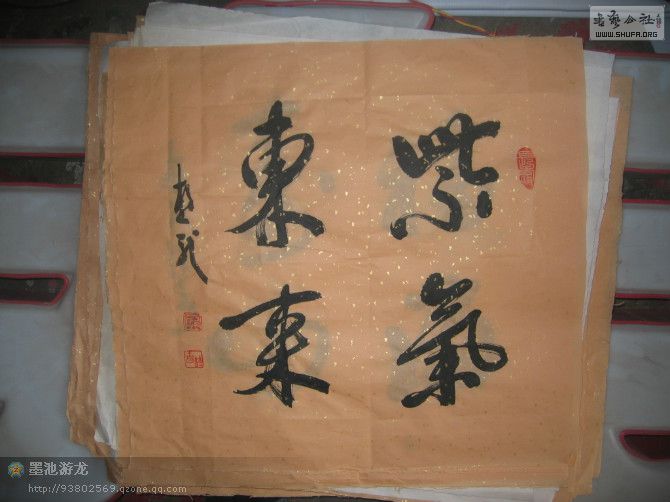 紫氣
東來
书艺公社
WWW.SHUFA.ORG
墨池游龙
http://93802569.qzone.qq.com